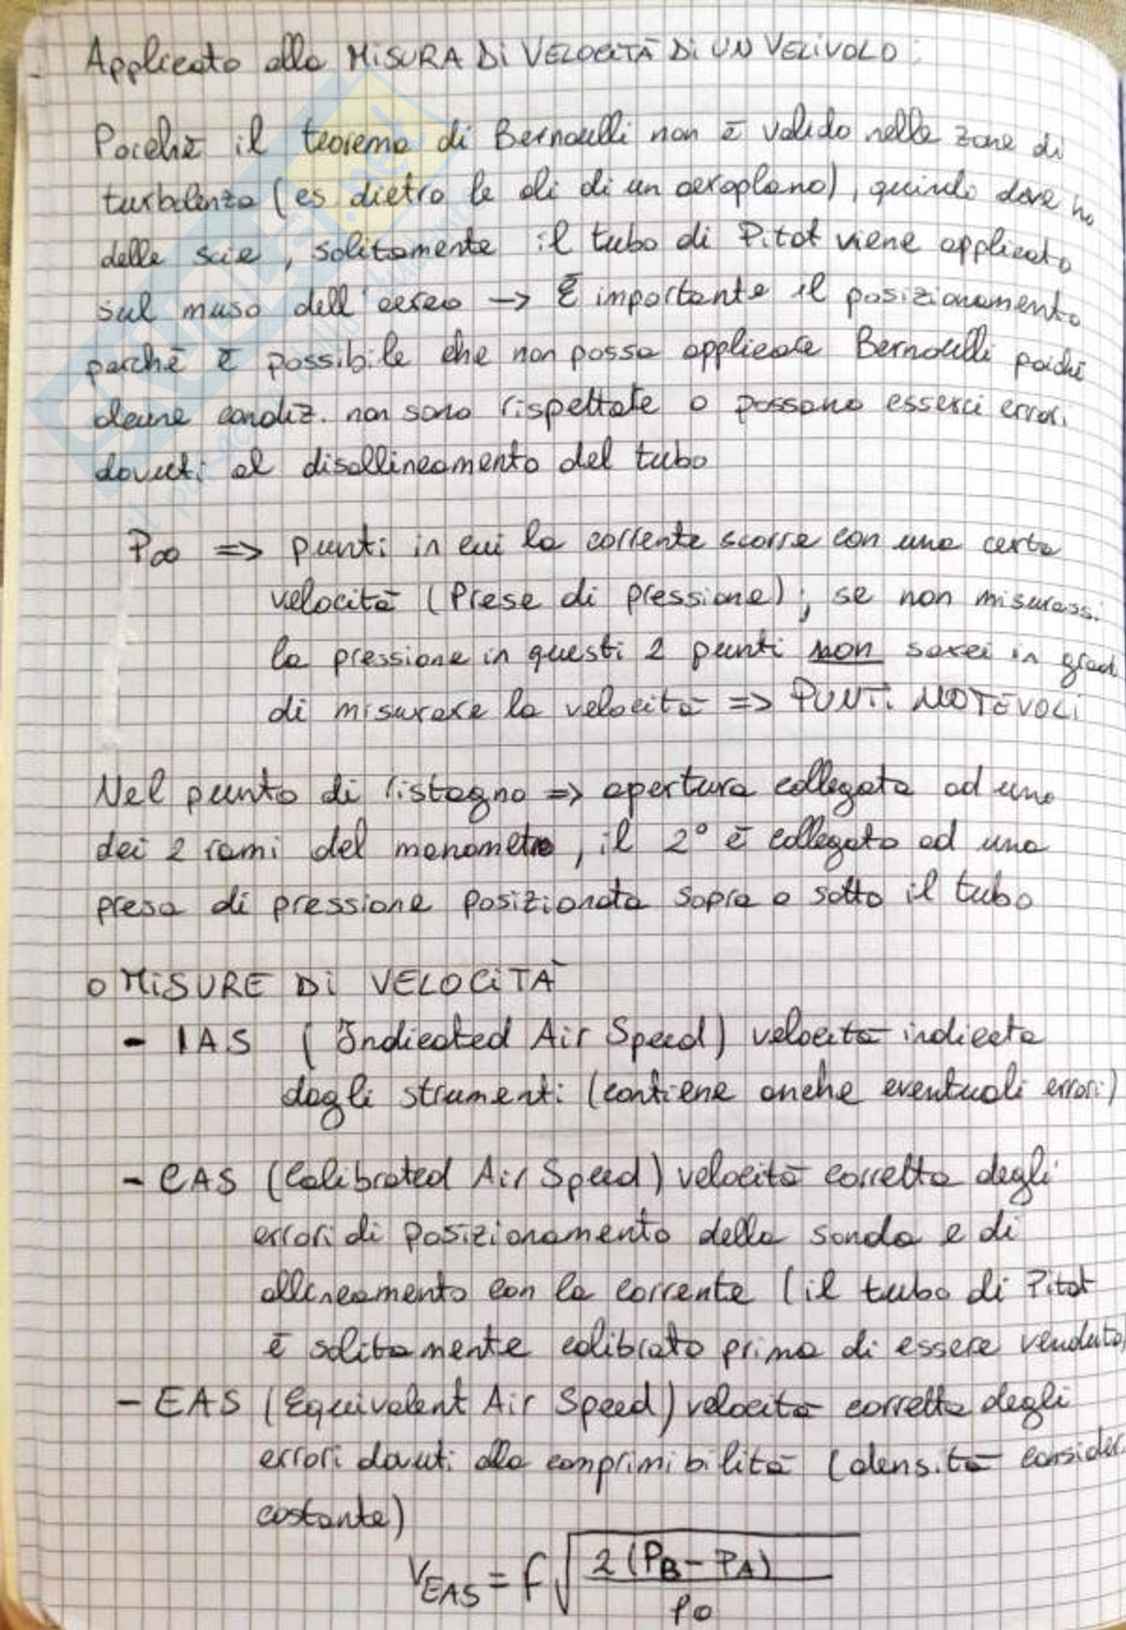 Applicato alla MISURA DI VELOCITÀ DI UN VELIVOLO:
Poichè il teorema di Bernoulli non è valido nelle zone di
turbolenza (es dietro le ali di un aeroplano), quindi dove ho
delle scie, solitamente il tubo di Pitot viene applicato
sul muso dell'aereo → È importante il posizionamento
perchè è possibile che non possa applicare Bernoulli poichè
alcune condiz. non sono rispettate o possono esserci errori
dovuti al disallineamento del tubo
P∞ => punti in cui la corrente scorre con una certa
velocità (Prese di pressione); se non misurassi
la pressione in questi 2 punti non sarei in grad
di misurare la velocità => PUNTI NOTEVOLI
Nel punto di ristagno => apertura collegata ad uno
dei 2 rami del manometro, il 2° è collegato ad una
presa di pressione posizionata sopra o sotto il tubo
o MISURE DI VELOCITÀ
- IAS (Indicated Air Speed) velocità indicata
dagli strumenti (contiene anche eventuali errori)
- CAS (Calibrated Air Speed) velocità corretta degli
errori di posizionamento della sonda e di
allineamento con la corrente (il tubo di Pitot
è solitamente calibrato prima di essere venduto)
- EAS (Equivalent Air Speed) velocità corretta degli
errori dovuti alla comprimibilità (densità consider.
costante)
V_EAS = f √(2(P_B - P_A) / ρ_0)